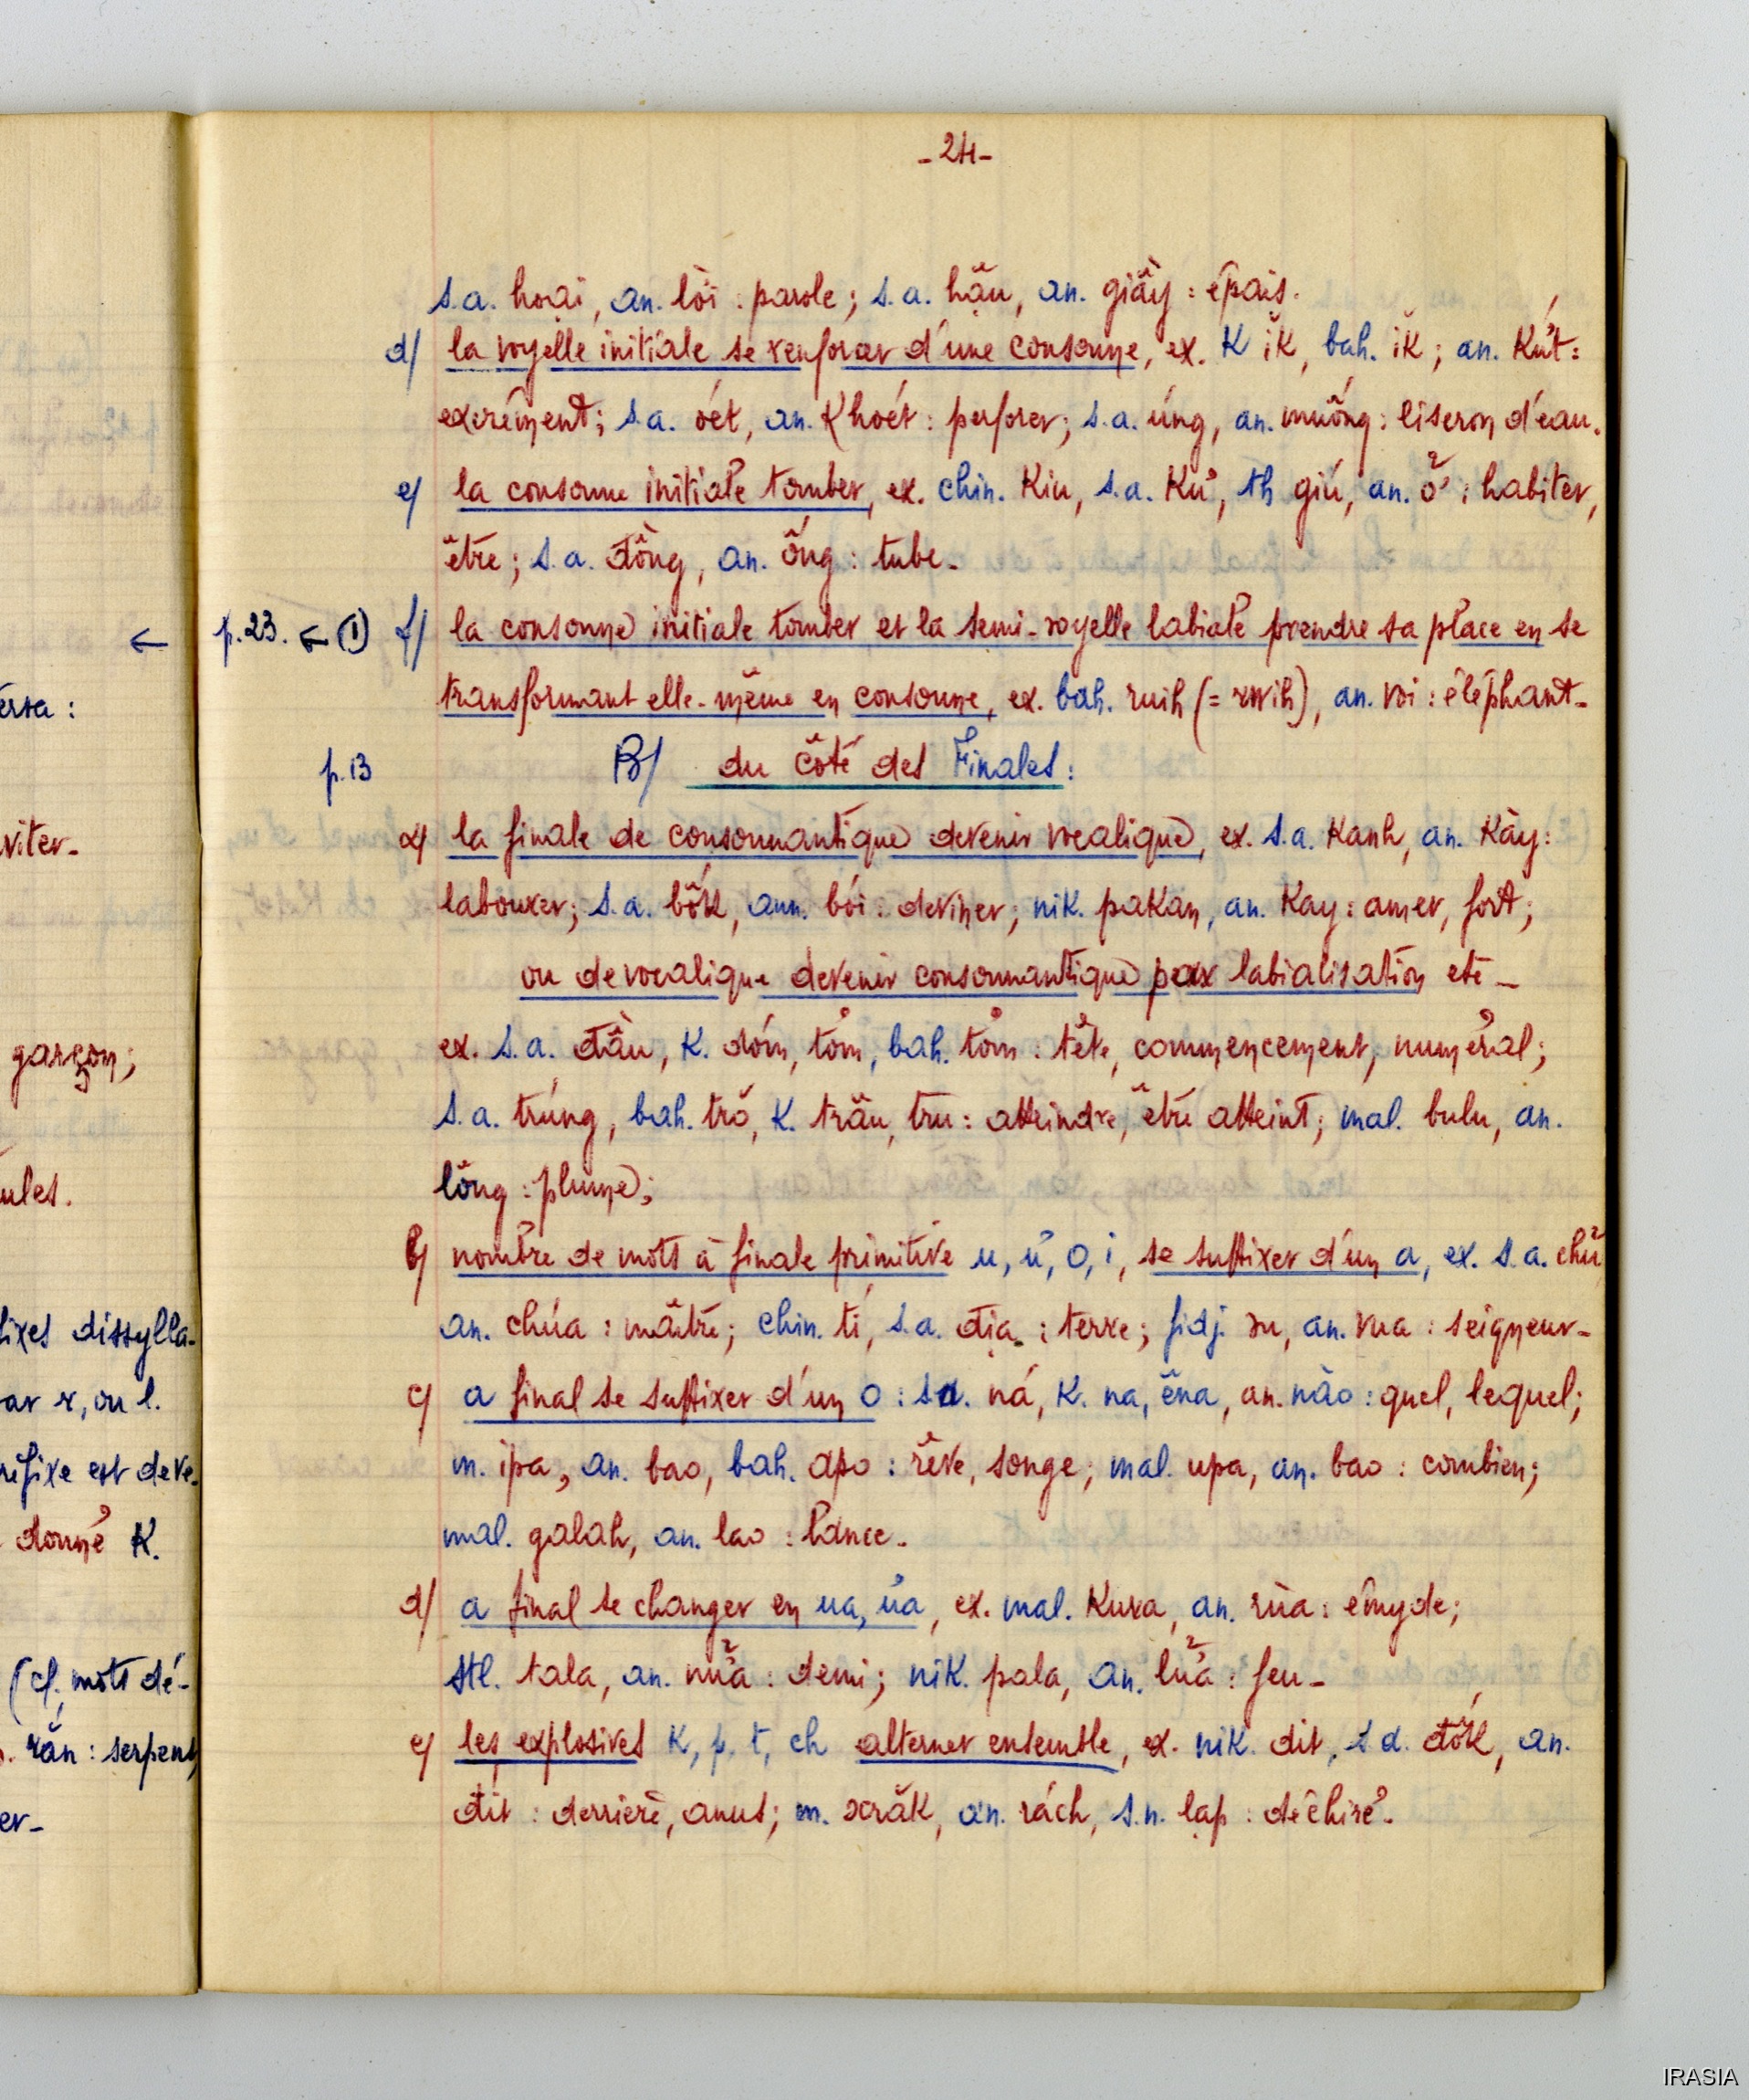 ersa :
viter-
garçon;
ules.
fixes dissylla-
ar r, ou l.
réfixe est deve-
donné K.
(cf. mots dé-
rắn : serpent,
er-
-24-
s.a. hoại, an. lời : parole; s.a. hậu, an. giầy : épais.
d/ la voyelle initiale se renforcer d'une consonne, ex. K ĭk, bah. ĭk; an. Kứt :
excrément; s.a. oét, an. Khoét : perforer; s.a. úng, an. muống : liseron d'eau.
e/ la consonne initiale tomber, ex. chin. Kiu, s.a. Kư, th giú, an. ở : habiter,
être; s.a. đồng, an. ống : tube-
← p.23. ← (1) f/ la consonne initiale tomber et la semi-voyelle labiale prendre sa place en se
transformant elle-même en consonne, ex. bah. ruih (= rwih), an. voi : éléphant-
p.13 B/ du côté des Finales :
a/ la finale de consonnantique devenir vocalique, ex. s.a. Kanh, an. Kày :
labourer; s.a. bốk, ann. bói : deviner; nik. pakan, an. Kay : amer, fort;
ou de vocalique devenir consonnantique par labialisation etc -
ex. s.a. đầu, K. dóm, tơm, bah. tơm : tête, commencement, numéral;
s.a. trúng, bah. trŏ, K. trâu, tru : atteindre, être atteint; mal. bulu, an.
lông : plume;
b/ nombre de mots à finale primitive u, ư, o, i, se suffixer d'un a, ex. s.a. chủ
an. chúa : maître; chin. ti, s.a. địa : terre; fidj. su, an. vua : seigneur-
c/ a final se suffixer d'un o : s.a. ná, K. na, êna, an. nào : quel, lequel;
m. ipa, an. bao, bah. apo : rêve, songe; mal. upa, an. bao : combien;
mal. galah, an. lao : lance-
d/ a final se changer en ua, ưa, ex. mal. Kura, an. rùa : émyde;
stl. tala, an. nửa : demi; nik. pala, an. lửa : feu-
e/ les explosives K, p, t, ch alterner ensemble, ex. nik. dit, s.a. đốk, an.
đít : derrière, anus; m. xrăk, an. rách, s.n. lạp : déchiré-
IRASIA